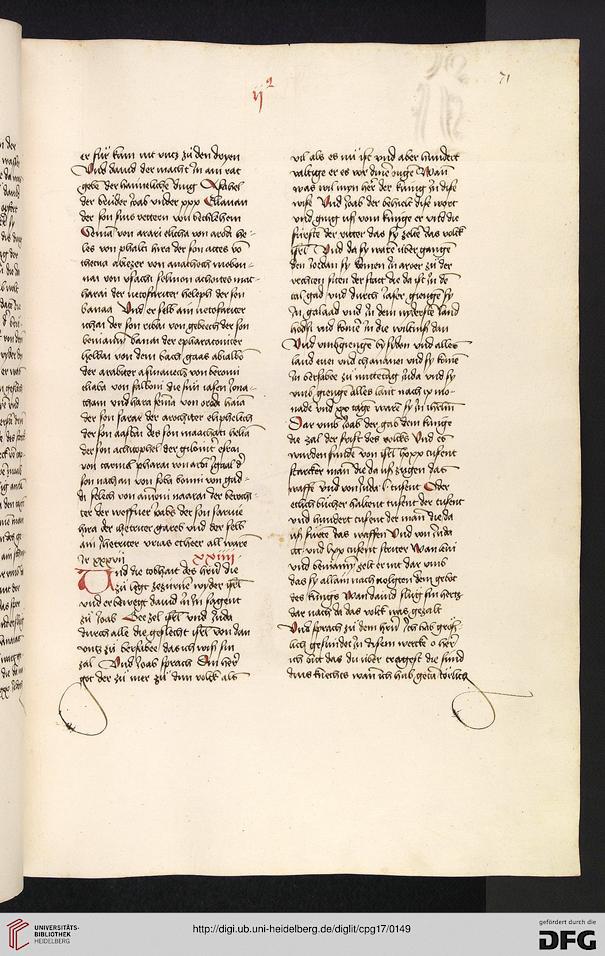 71
er für kam nit vntz zu den dryen
Vnd dauid der macht In am rat
gebe der haimliche ding Asahel
der bruder Joab vnder xxx Elianan
der son sins vettern von bethlehem
von arari elicha von arodi he-
les von phalti hira der son acces vo
thecua abiezer von anathoch mobon-
nai von vsachi selmon achoites mac-
harai der netofatiter heleph der son
banaa Vnd er selb ain netofatiter
ithai der son ribai von gebeeth der son
beniamin banai der epharatoniter
helbai von dem bach gaas abialbo
der arabater asmaueth von beromi
eliaba von salboni die sün iasen Jona-
than vnd hara semia von orodi haia
der son sarar der arochiter eliphelech
der son aasbai des son maachati helia
der son achitophel der giloniter esrai
von carmel pharai von arbi Igaal d
son nathan von soba bonni von gad-
di selech von amoni naarai der beroth-
ter der woffner Joabs der son saruie
hira der ietriter gareb vnd der selb
ain Jhetriter vrias etheer all ware
Ir xxxvii xxiiii
Vnd die tobhait des hern die
zu legt ze zurne wyder isrl
vnd er bewegt dauid in In sagent
zu Joab Gee zel isrl vnd Juda
durch alle die geslecht isrl von dan
vntz zu bersabee das ich wiß sin
zal Vnd Joab sprach Din her
got der zu mer zu dim volck als
vil als es nu ist vnd aber hundert
valtige er es vor dine ouge Wan
was wil myn her der kunig In dise
wise Vnd Joab der behielt dise wort
vnd gieng uß vom kunge er vnd die
fürste der ritter das sy zelte das volck
isrl Vnd da sy ware vber gange
den Jordan sy komen In aroer zu der
rechten siten der statt die da ist In de
tal gad vnd durch Jaser gienge sy
In galaad vnd In dem nyderste land
hodsi vnd kome In die wiltnis dan
Vnd vmbgienge by sydon vnd alles
land euei vnd chananei vnd sy kome
In bersabee zu mittetag Juda vnd sy
vmb gienge alles lant nach ix mo-
nade vnd xx tage ware sy In iherlm
Dar vmb Joab der gab dem kunge
die zal der des volcks Vnd es
wurden funde von isrl lxxx tusent
starcker man die da uß zugen das
waffe vnd von Juda l tusent Oder
etlich bücher haltent tusent der tusent
vnd hundert tusent der man die da
uß furte das waffen Vnd von Juda
cc vnd lxx tusent striter Wan leui
vnd beniamin zelt er nit dar vmb
das sy allain nach volgten dem gebot
des kungs Wan dauid slug sin hertz
dar nach da das volck was gezalt
Vnd sprach zu dem hern Ich hab größ-
lich gesundet In disem wercke o her
ich bitt das du vber tragest die sund
dins knechts wan ich hab getan torlich
UNIVERSITÄTS-
BIBLIOTHEK
HEIDELBERG
http://digi.ub.uni-heidelberg.de/diglit/cpg17/0149
gefördert durch die
DFG